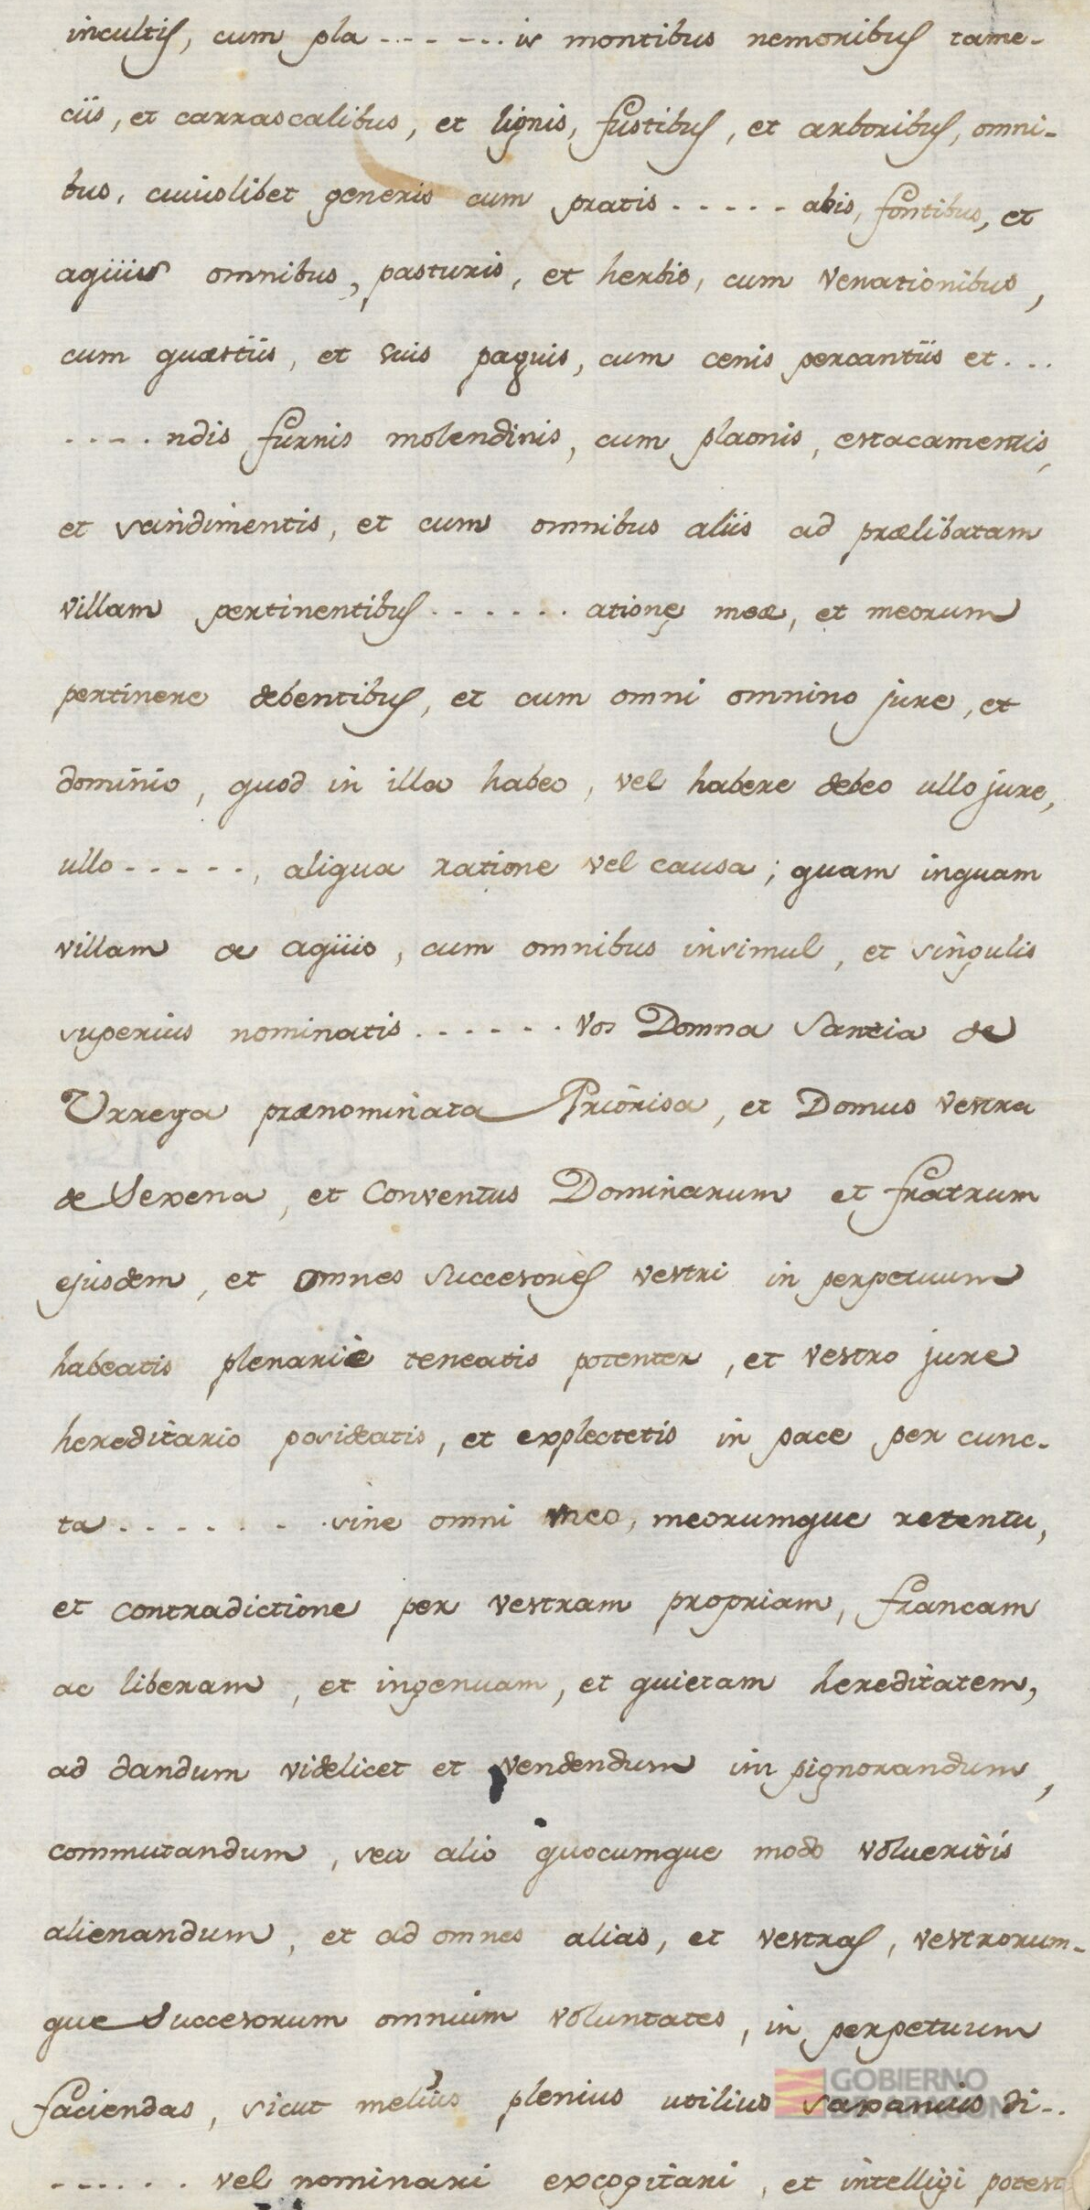 incultis, cum pla - - - - - - is montibus nemoribus tame-
ciis, et carrascalibus, et lignis, fustibus, et arboribus, omni-
bus, cuiuslibet generis cum pratis - - - - - abis, fontibus, et
agüiis omnibus, pasturis, et herbis, cum venationibus,
cum quæstiis, et suis paquis, cum cenis percantiis et . . .
- - - - ndis furnis molendinis, cum plaonis, estacamentis,
et vandimentis, et cum omnibus aliis ad prælibatam
villam pertinentibus - - - - - - atione meæ, et meorum
pertinere debentibus, et cum omni omnino jure, et
dominio, quod in illa habeo, vel habere debeo ullo jure,
ullo - - - - -, aliqua ratione vel causa; quam inquam
villam de agüis, cum omnibus insimul, et singulis
superius nominatis - - - - - - vos Domna Santia de
Urreya prænominata Priorisa, et Domus vestra
de Sexena, et Conventus Dominarum et fratrum
ejusdem, et omnes succesores vestri in perpetuum
habeatis plenariè teneatis potenter, et vestro jure
hereditario posideatis, et explectetis in pace per cunc-
ta - - - - - - - sine omni meo, meorumque retentu,
et contradictione per vestram propriam, francam
ac liberam, et ingenuam, et quietam hereditatem,
ad dandum videlicet et vendendum im pignorandum,
commutandum, seu alio quocumque modo volueritis
alienandum, et ad omnes alias, et vestras, vestrorum-
que Succesorum omnium voluntates, in perpetuum
faciendas, sicut melius plenius utilius saxanius di-..
- - - - - - vel nominari excogitari, et intelligi potest
GOBIERNO
DE ARAGON